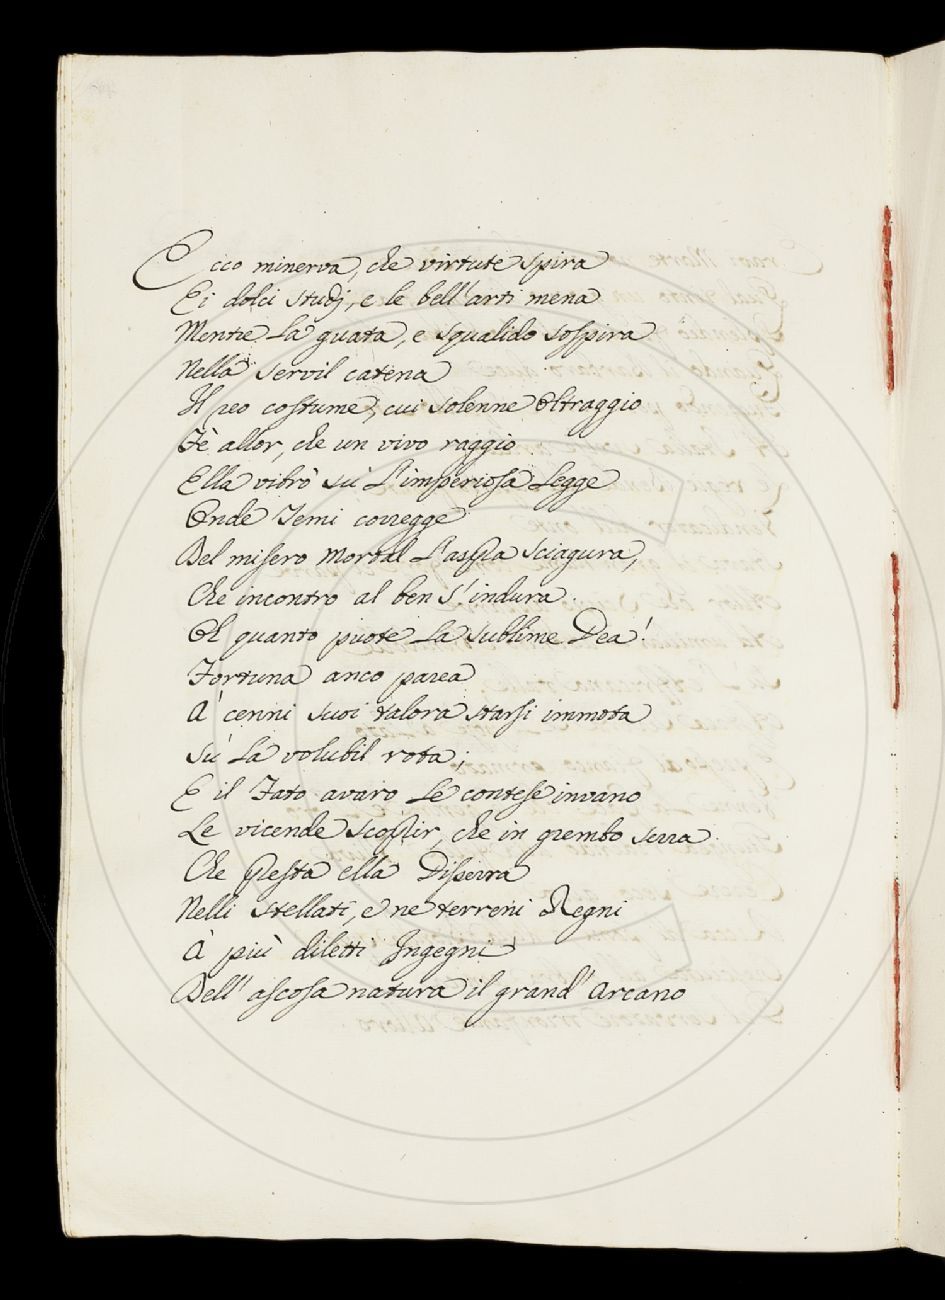 Ecco minerva, che virtute spira
E i dolci studj, e le bell'arti mena
Mentre La guata, e squalido sospira
Nella servil catena
Il reo costume, cui solenne Oltraggio
Fè allor, che un vivo raggio
Ella vibrò sù L'imperiosa Legge
Onde Temi corregge
Del misero mortal L'aspra sciagura,
Che incontro al ben s'indura.
Oh quanto puote La sublime Dea!
Fortuna anco parea
A' cenni suoi talora starsi immota
Sù La volubil rota;
E il Fato avaro Le contese invano
Le vicende scoprir, che in grembo serra
Che presta ella Disserra
Nelli stellati, e ne terreni Regni
A più diletti Ingegni
Dell' ascosa natura il grand' Arcano